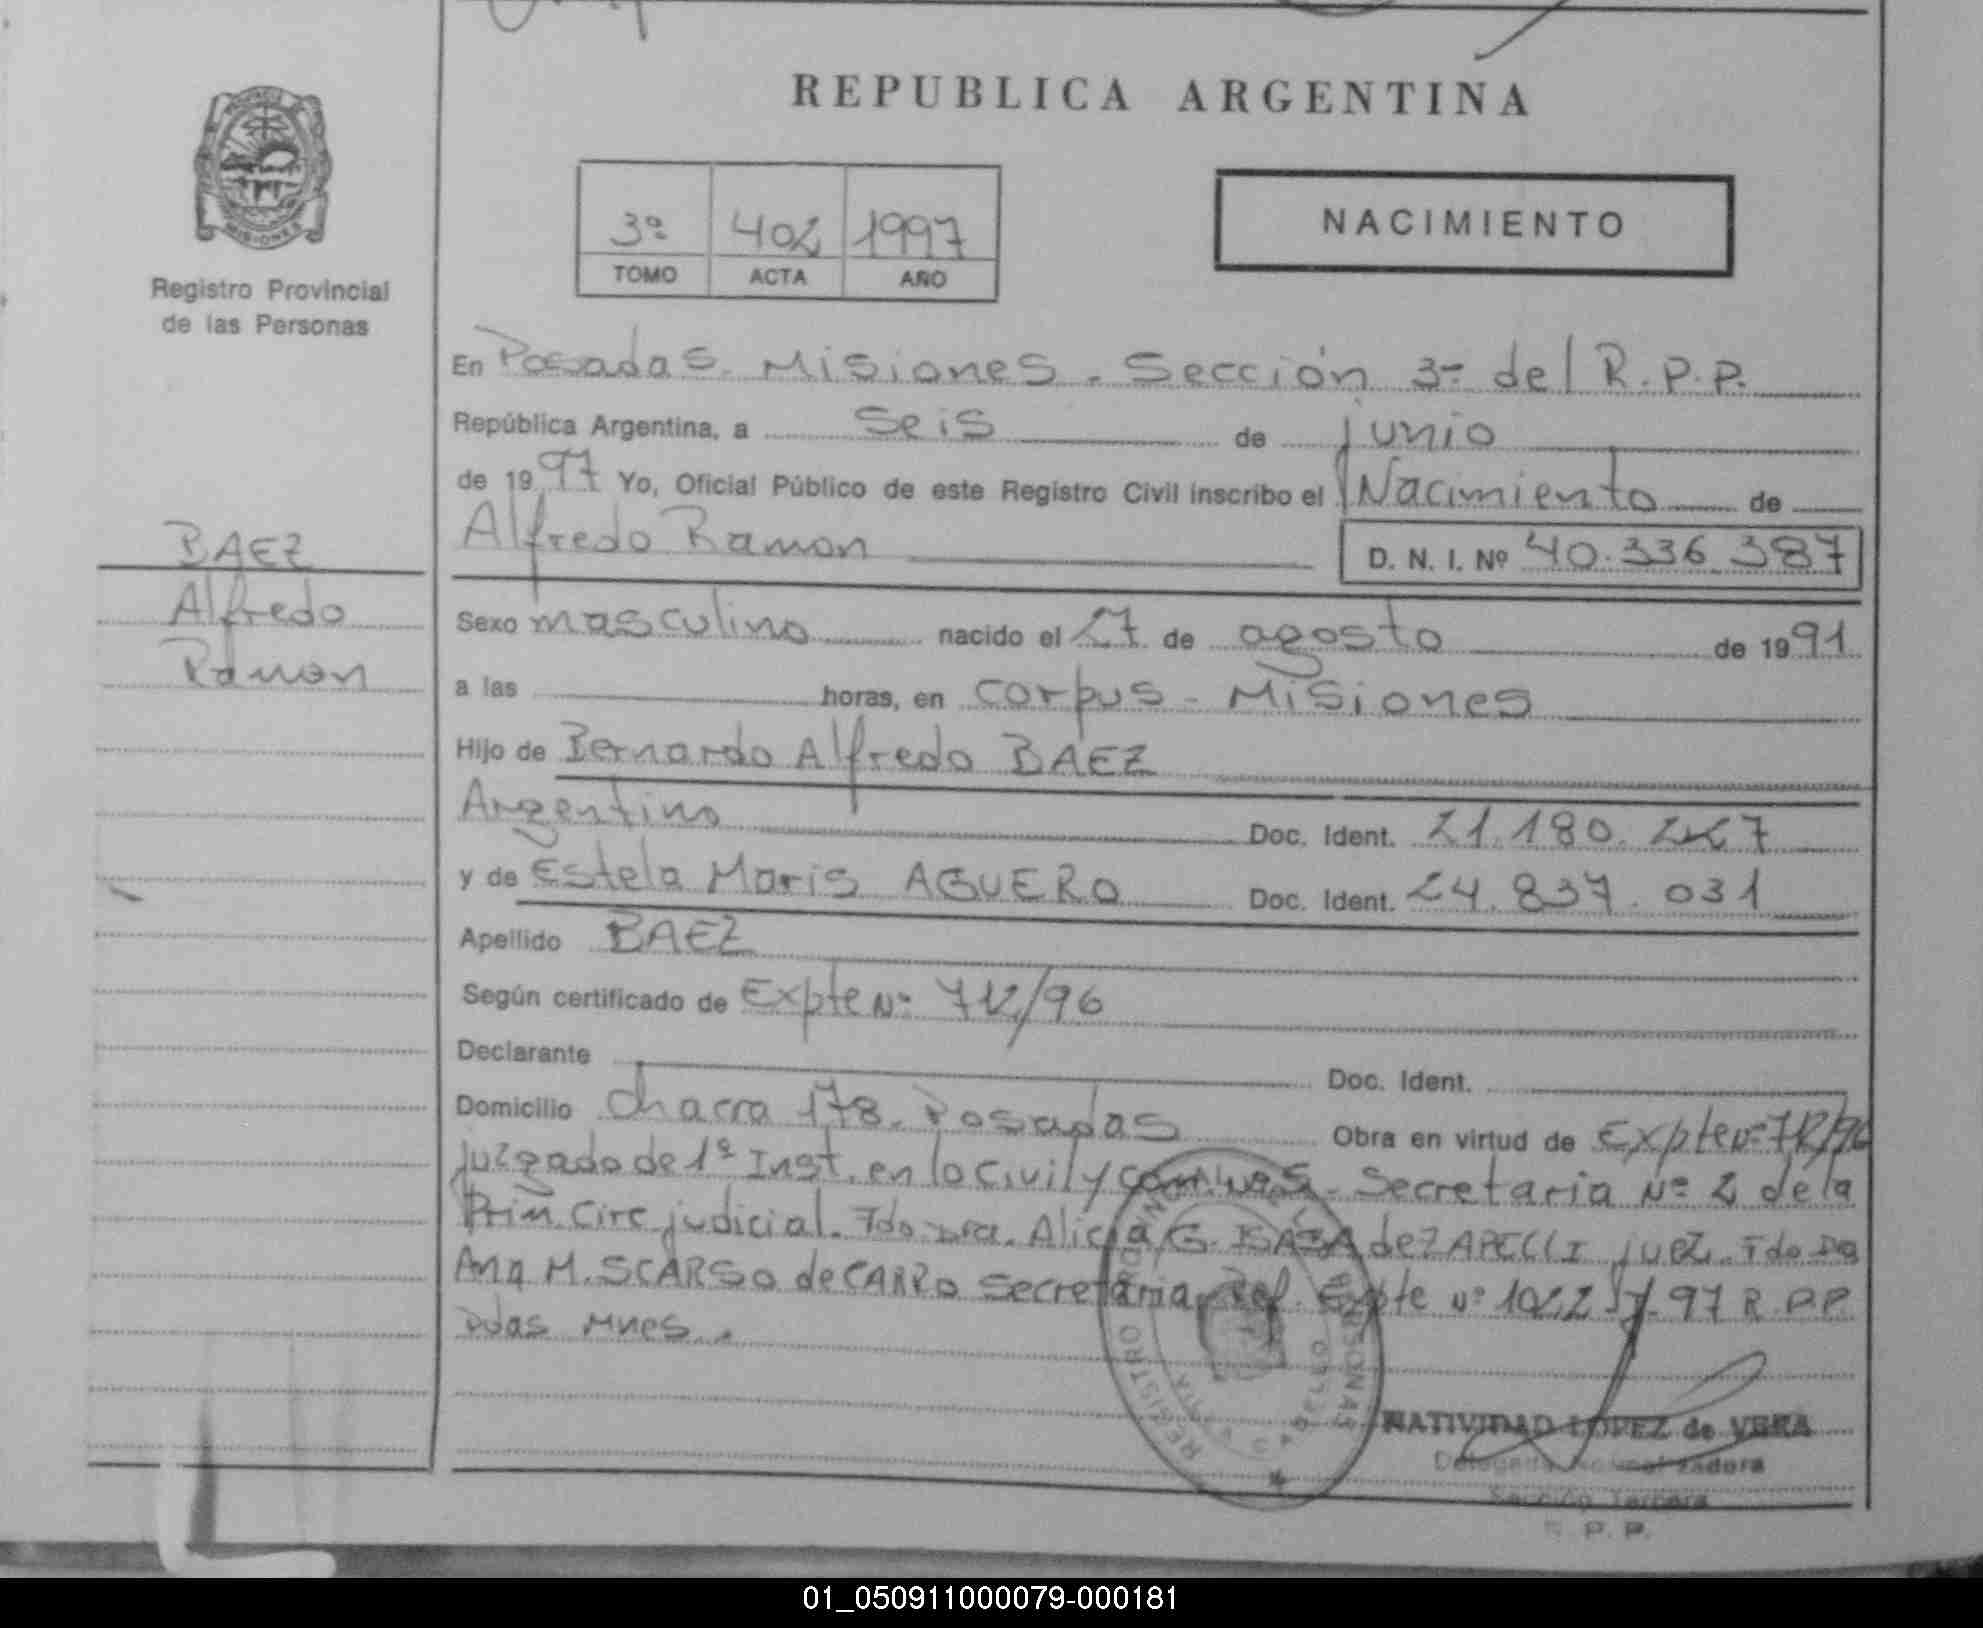 REPUBLICA ARGENTINA
MISIONES
Registro Provincial
de las Personas
3ª 402 1997
TOMO ACTA AÑO
NACIMIENTO
En Posadas. Misiones. Sección 3ª del R.P.P.
República Argentina, a seis de junio
de 1997 Yo, Oficial Público de este Registro Civil inscribo el Nacimiento de
Alfredo Ramon D. N. I. Nº 40.336.387
BAEZ
Alfredo
Ramon
Sexo masculino nacido el 27 de agosto de 1991
a las horas, en Corpus - Misiones
Hijo de Bernardo Alfredo BAEZ
Argentino Doc. Ident. 21.180.227
y de Estela Maris AGUERO Doc. Ident. 24.837.031
Apellido BAEZ
Según certificado de Expte Nº 712/96
Declarante Doc. Ident.
Domicilio Chacra 178. Posadas Obra en virtud de Expte Nº 712/96
juzgado de 1ª Inst. en lo Civil y Secretaria Nº 2 de la
Prim. Circ. judicial. Fdo Dra. Alicia G. de ZAPELLI juez. Fdo Da
Ana M. SCARSO de CARRO Secretaria Ref. Expte Nº 97 R.P.P.
Pdas Mnes.
REGISTRO PERSONAS
NATIVIDAD LOPEZ de VERA
Delegada
Sección Tercera
R. P. P.
01_050911000079-000181